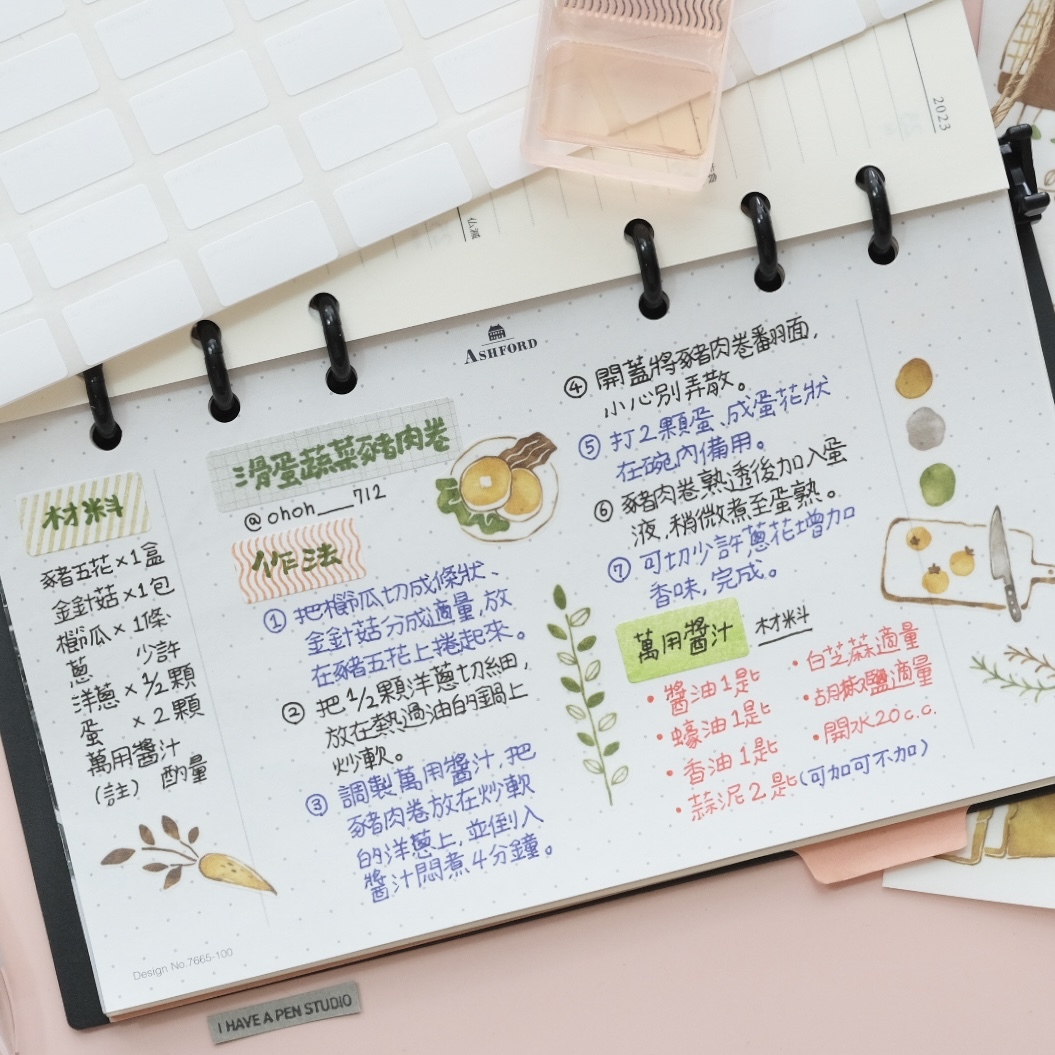 2023
ASHFORD
滑蛋蔬菜豬肉卷
@ohoh___712
材料
豬五花×1盒
金針菇×1包
櫛瓜×1條
蔥 少許
洋蔥×1/2顆
蛋 ×2顆
萬用醬汁
(註) 酌量
作法
① 把櫛瓜切成條狀、
金針菇分成適量,放
在豬五花上捲起來。
② 把1/2顆洋蔥切細,
放在熱過油的鍋上
炒軟。
③ 調製萬用醬汁,把
豬肉卷放在炒軟
的洋蔥上,並倒入
醬汁悶煮4分鐘。
④ 開蓋將豬肉卷翻面,
小心別弄散。
⑤ 打2顆蛋、成蛋花狀
在碗內備用。
⑥ 豬肉卷熟透後加入蛋
液,稍微煮至蛋熟。
⑦ 可切少許蔥花增加
香味,完成。
萬用醬汁 材料
•醬油1匙
•蠔油1匙
•香油1匙
•蒜泥2匙(可加可不加)
•白芝麻適量
•胡椒鹽適量
•開水20c.c.
Design No.7665-100
I HAVE A PEN STUDIO